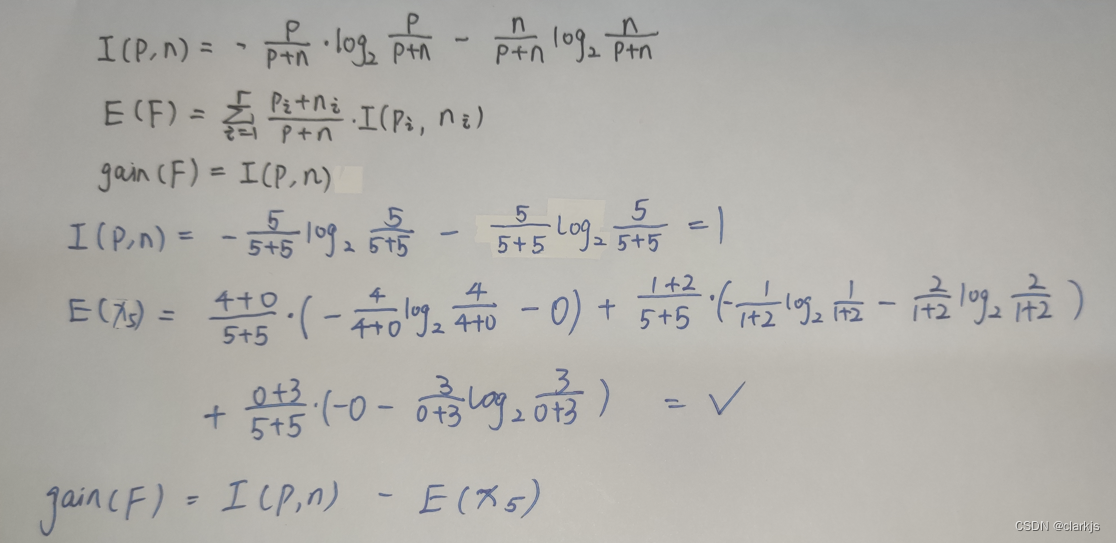 I(P,n) = - P/(P+n) · log₂ P/(P+n) - n/(P+n) log₂ n/(P+n)
E(F) = Σ_{i=1}^{r} (Pᵢ+nᵢ)/(P+n) · I(Pᵢ, nᵢ)
gain(F) = I(P,n)
I(P,n) = - 5/(5+5) log₂ 5/(5+5) - 5/(5+5) log₂ 5/(5+5) = 1
E(x₅) = (4+0)/(5+5) · (- 4/(4+0) log₂ 4/(4+0) - 0) + (1+2)/(5+5) · (- 1/(1+2) log₂ 1/(1+2) - 2/(1+2) log₂ 2/(1+2))
+ (0+3)/(5+5) · (-0 - 3/(0+3) log₂ 3/(0+3)) = √
gain(F) = I(P,n) - E(x₅)
CSDN @clarkjs